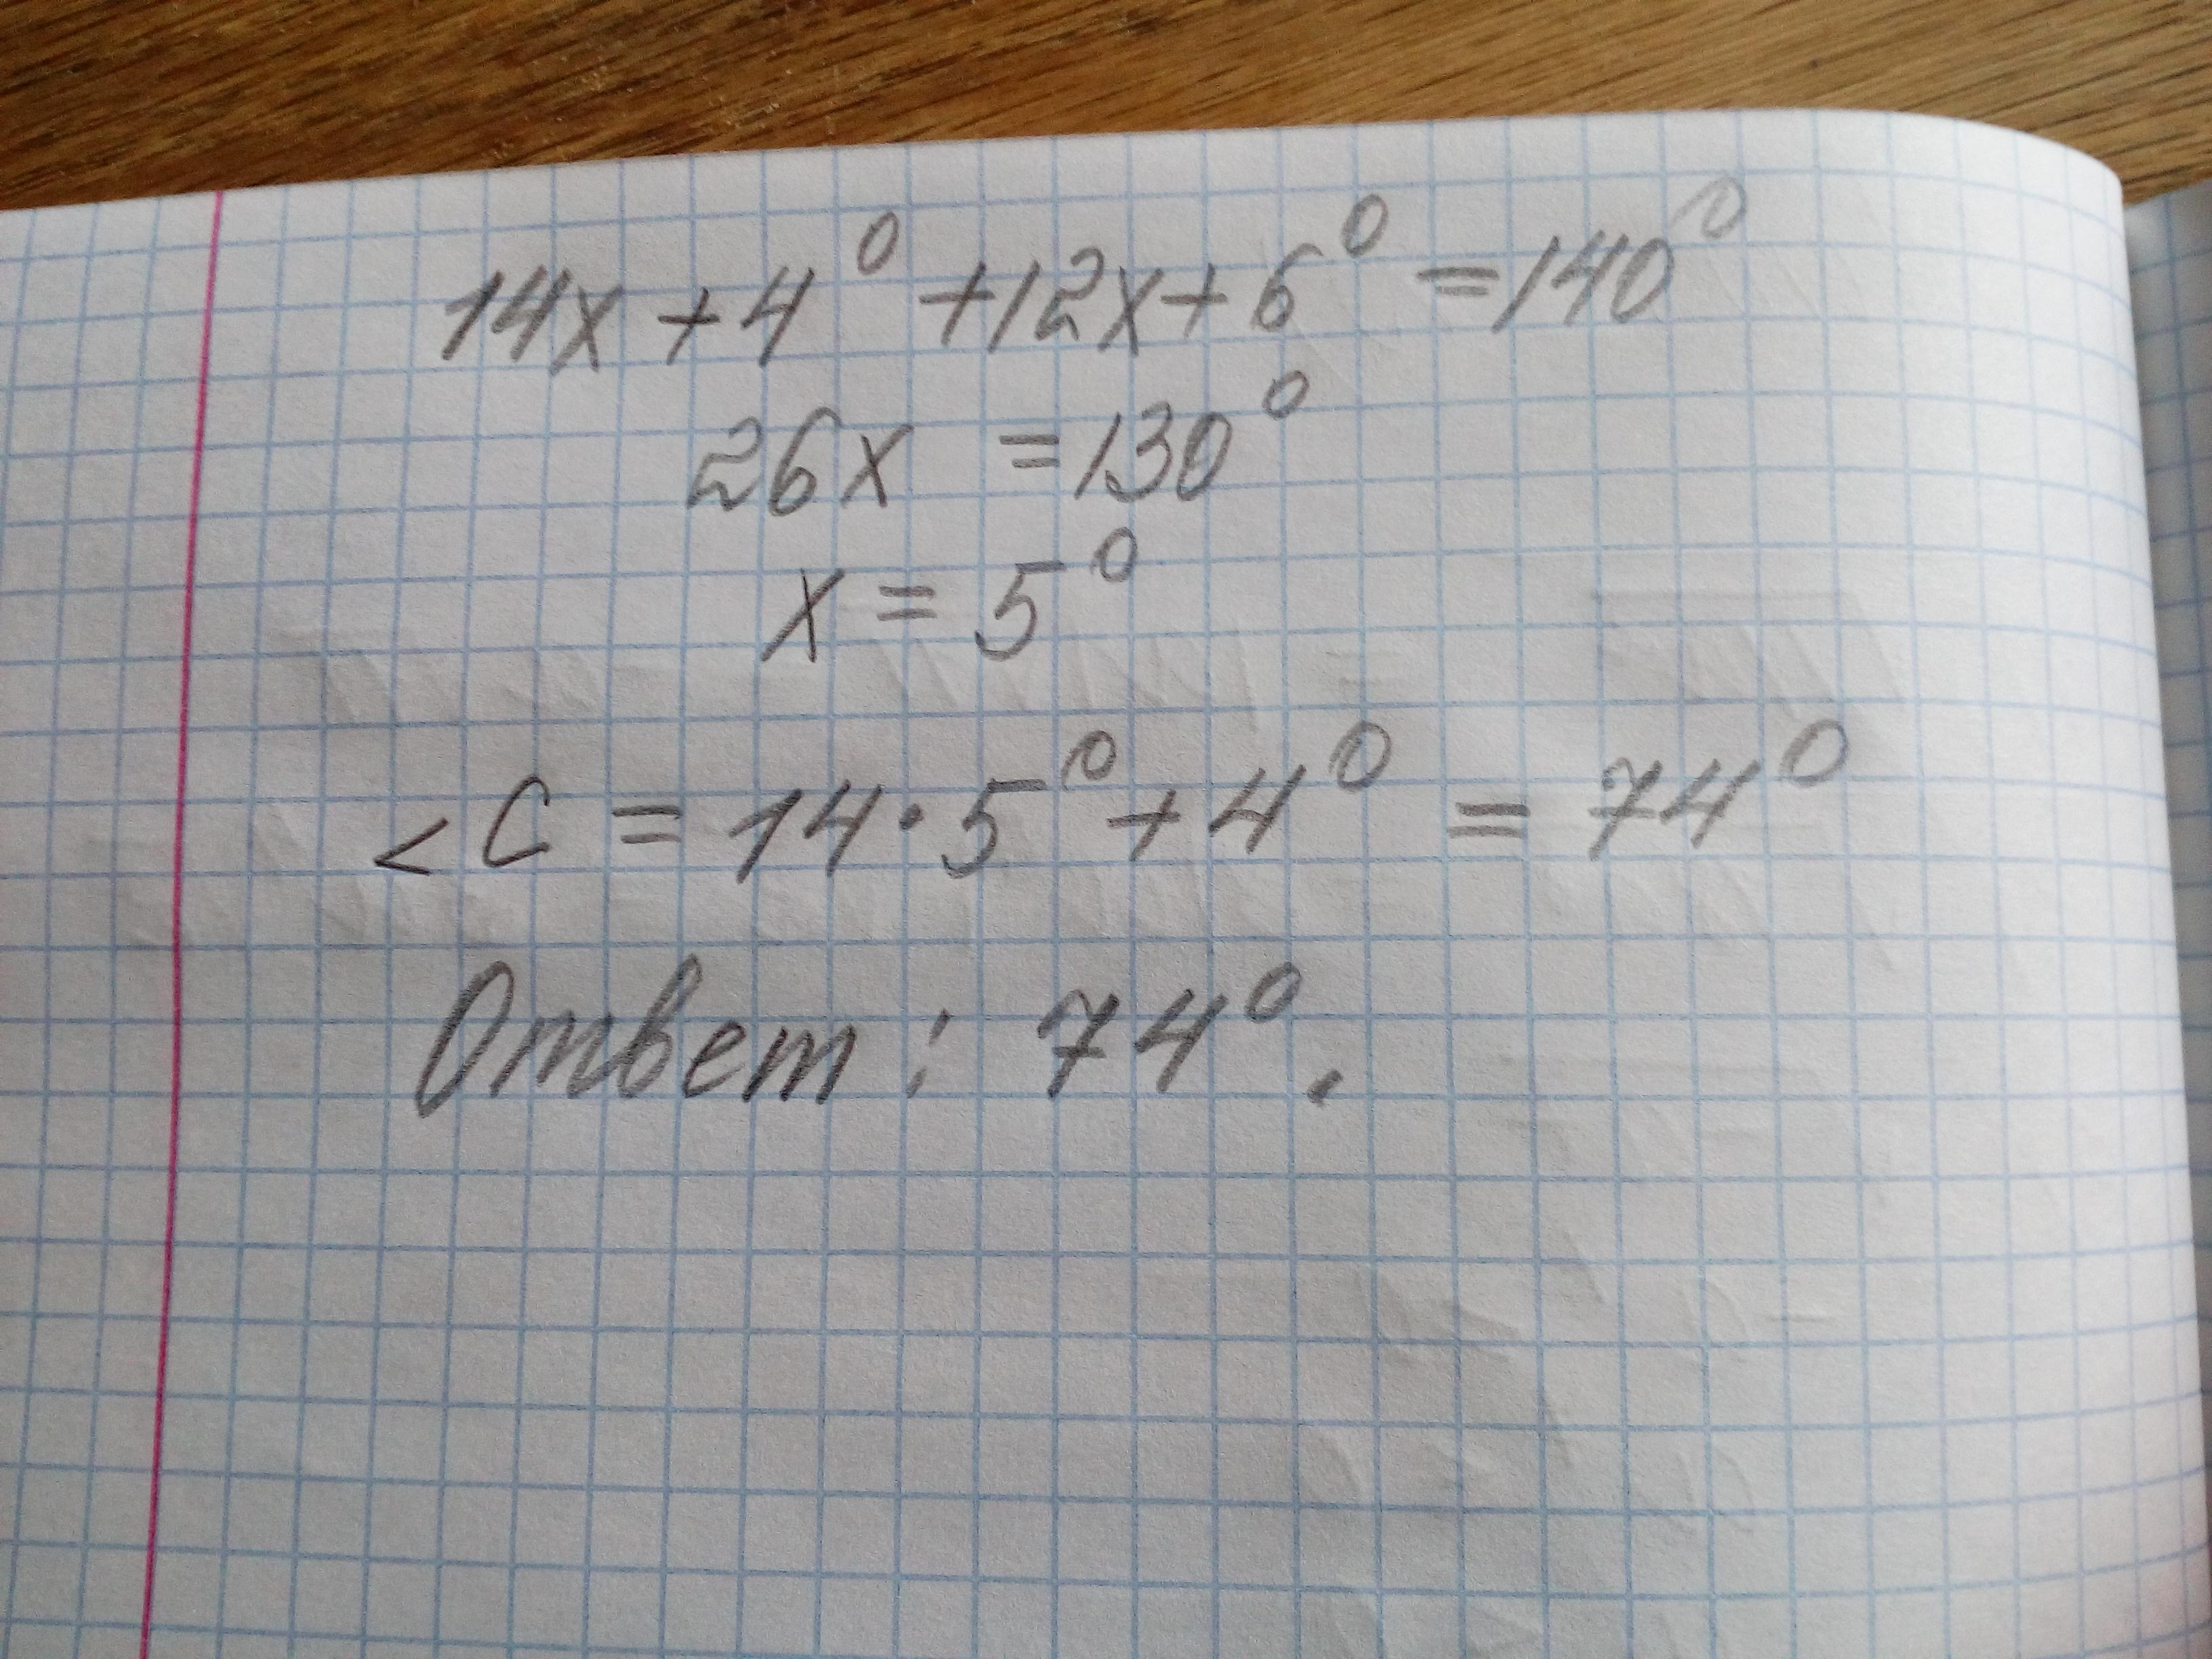 14x + 4⁰ + 12x + 6⁰ = 140⁰
26x = 130⁰
x = 5⁰
< C = 14 · 5⁰ + 4⁰ = 74⁰
Ответ: 74⁰.